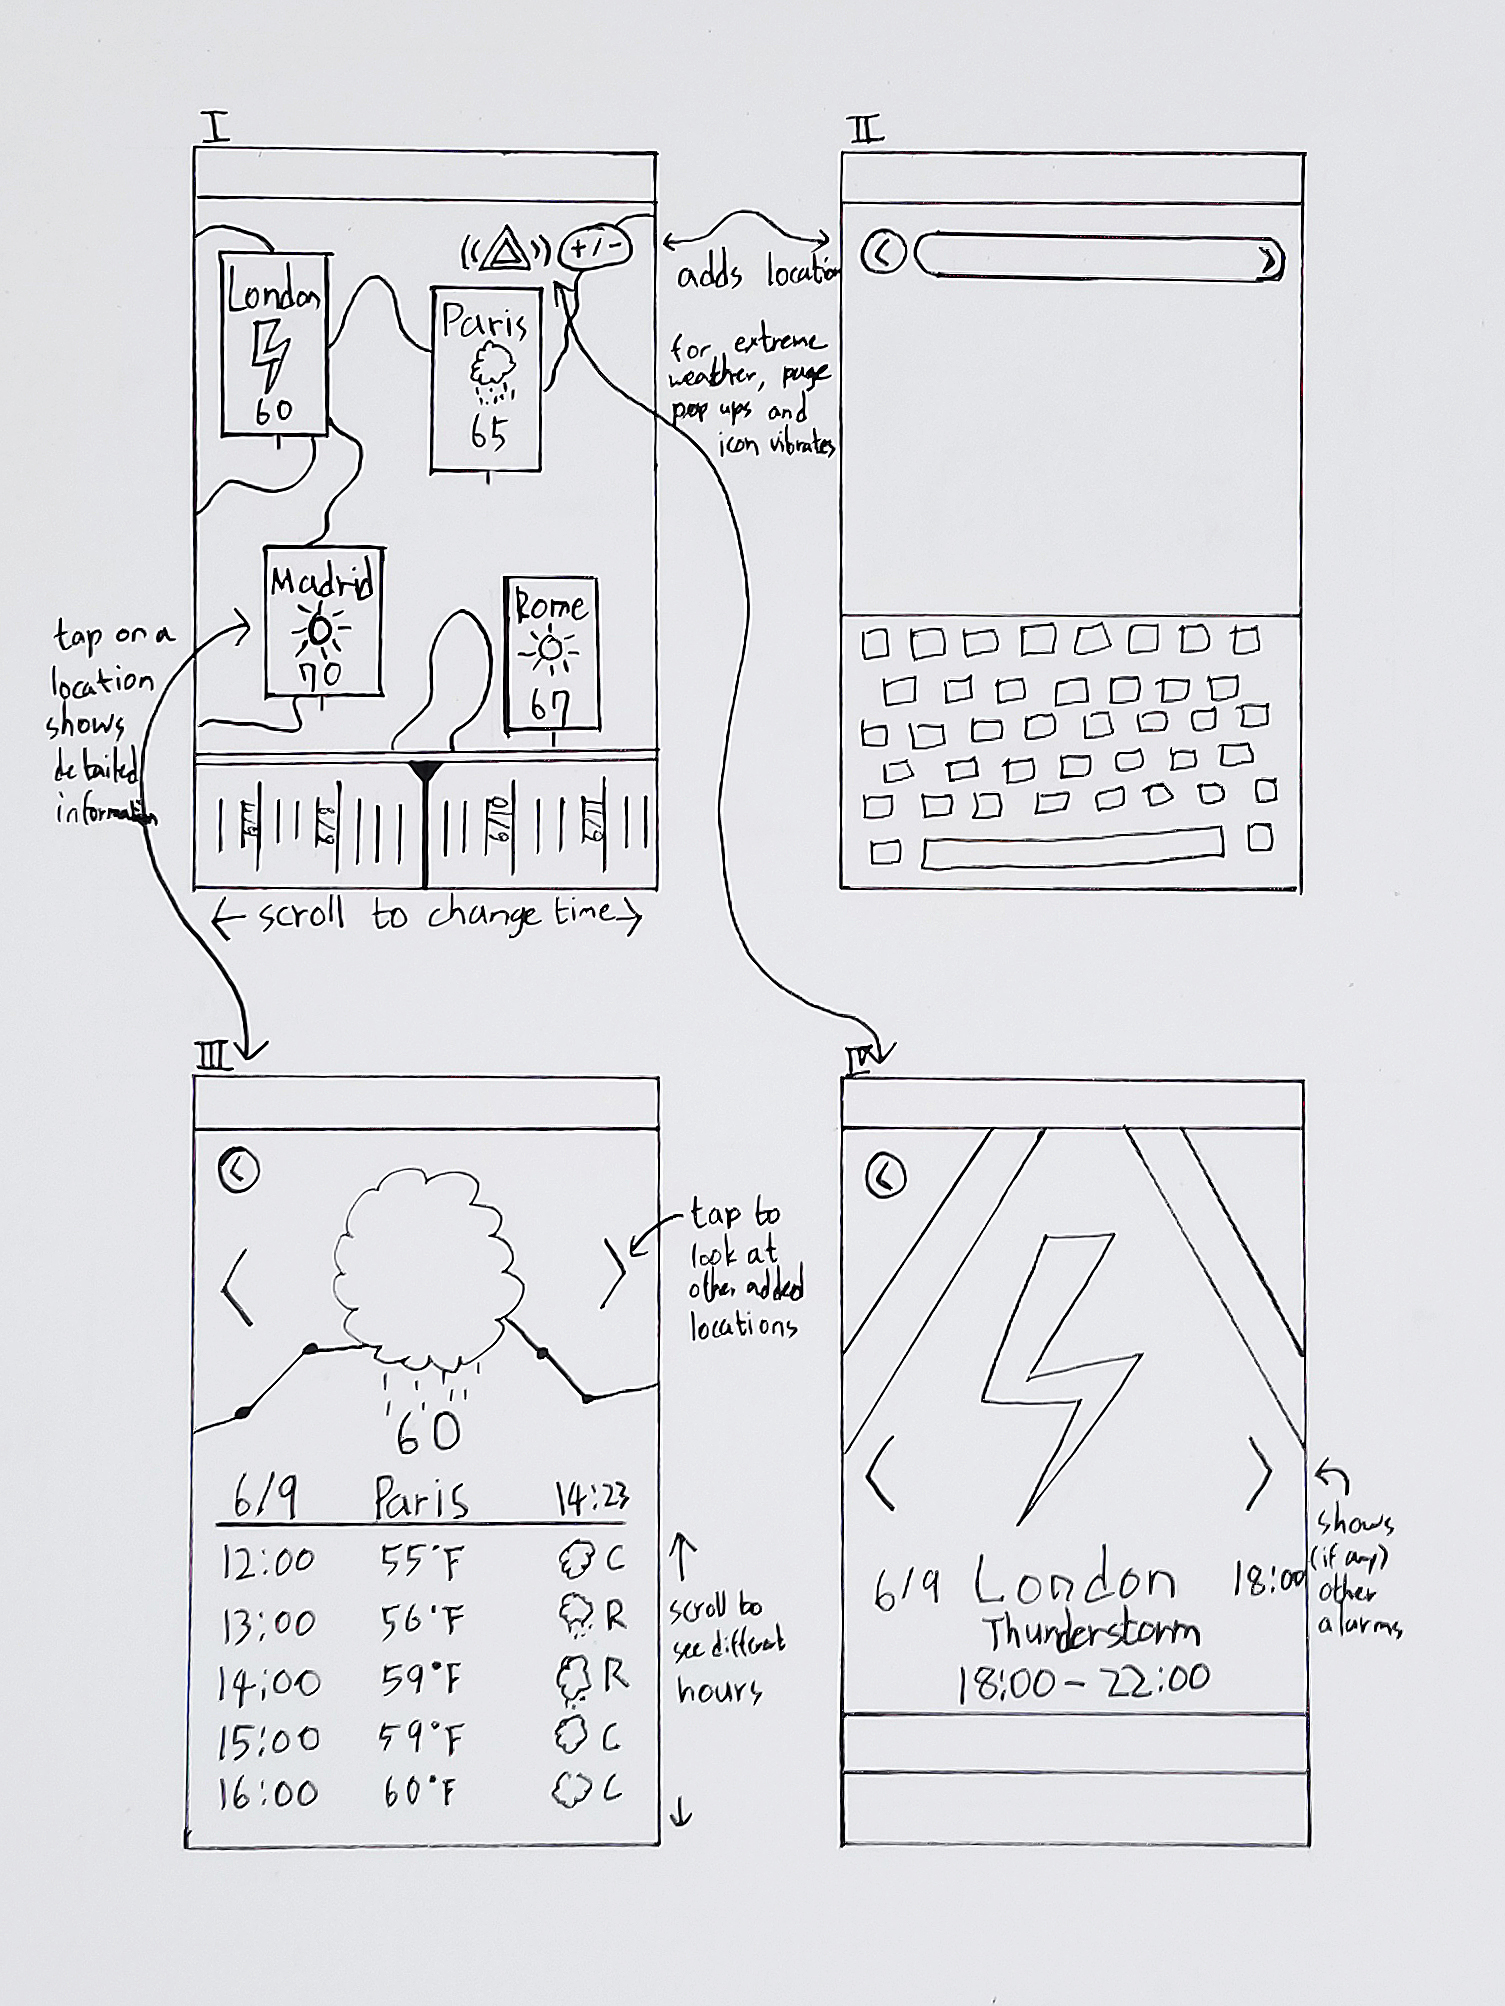 I
London
60
+/-
Paris
65
Madrid
70
Rome
67
8/9
10/9
11/9
← scroll to change time →
adds location
for extreme
weather, page
pop ups and
icon vibrates
II
tap on a
location
shows
detailed
information
III
60
6/9 Paris 14:23
12:00 55°F C
13:00 56°F R
14:00 59°F R
15:00 59°F C
16:00 60°F C
tap to
look at
other added
locations
scroll to
see different
hours
IV
6/9 London 18:00
Thunderstorm
18:00 - 22:00
shows
(if any)
other
alarms